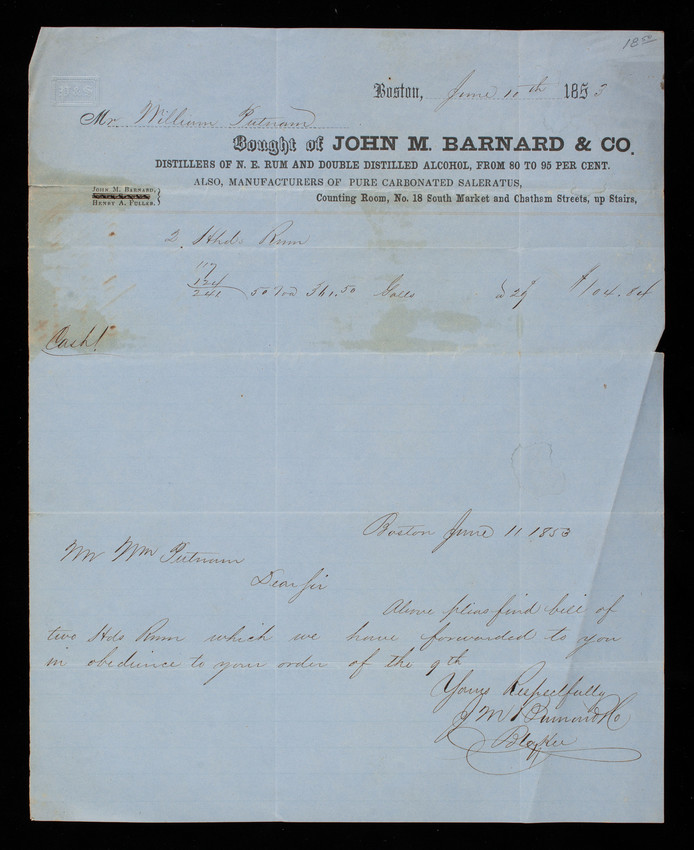 18 50
Boston, June 10th 1853
Mr. William Putnam
Bought of JOHN M. BARNARD & CO.
DISTILLERS OF N. E. RUM AND DOUBLE DISTILLED ALCOHOL, FROM 80 TO 95 PER CENT.
ALSO, MANUFACTURERS OF PURE CARBONATED SALERATUS,
JOHN M. BARNARD,
HENRY A. FULLER.
Counting Room, No. 18 South Market and Chatham Streets, up Stairs,
2 Hhds Rum
117
124
241 50 361.50 Galls 29 $104.84
Cash!
Boston June 11 1853
Mr Wm Putnam
Dear Sir
Above pleas find bill of
two Hds Rum which we have forwarded to you
in obedience to your order of the 9th
Yours Respectfully
J M Barnard & Co